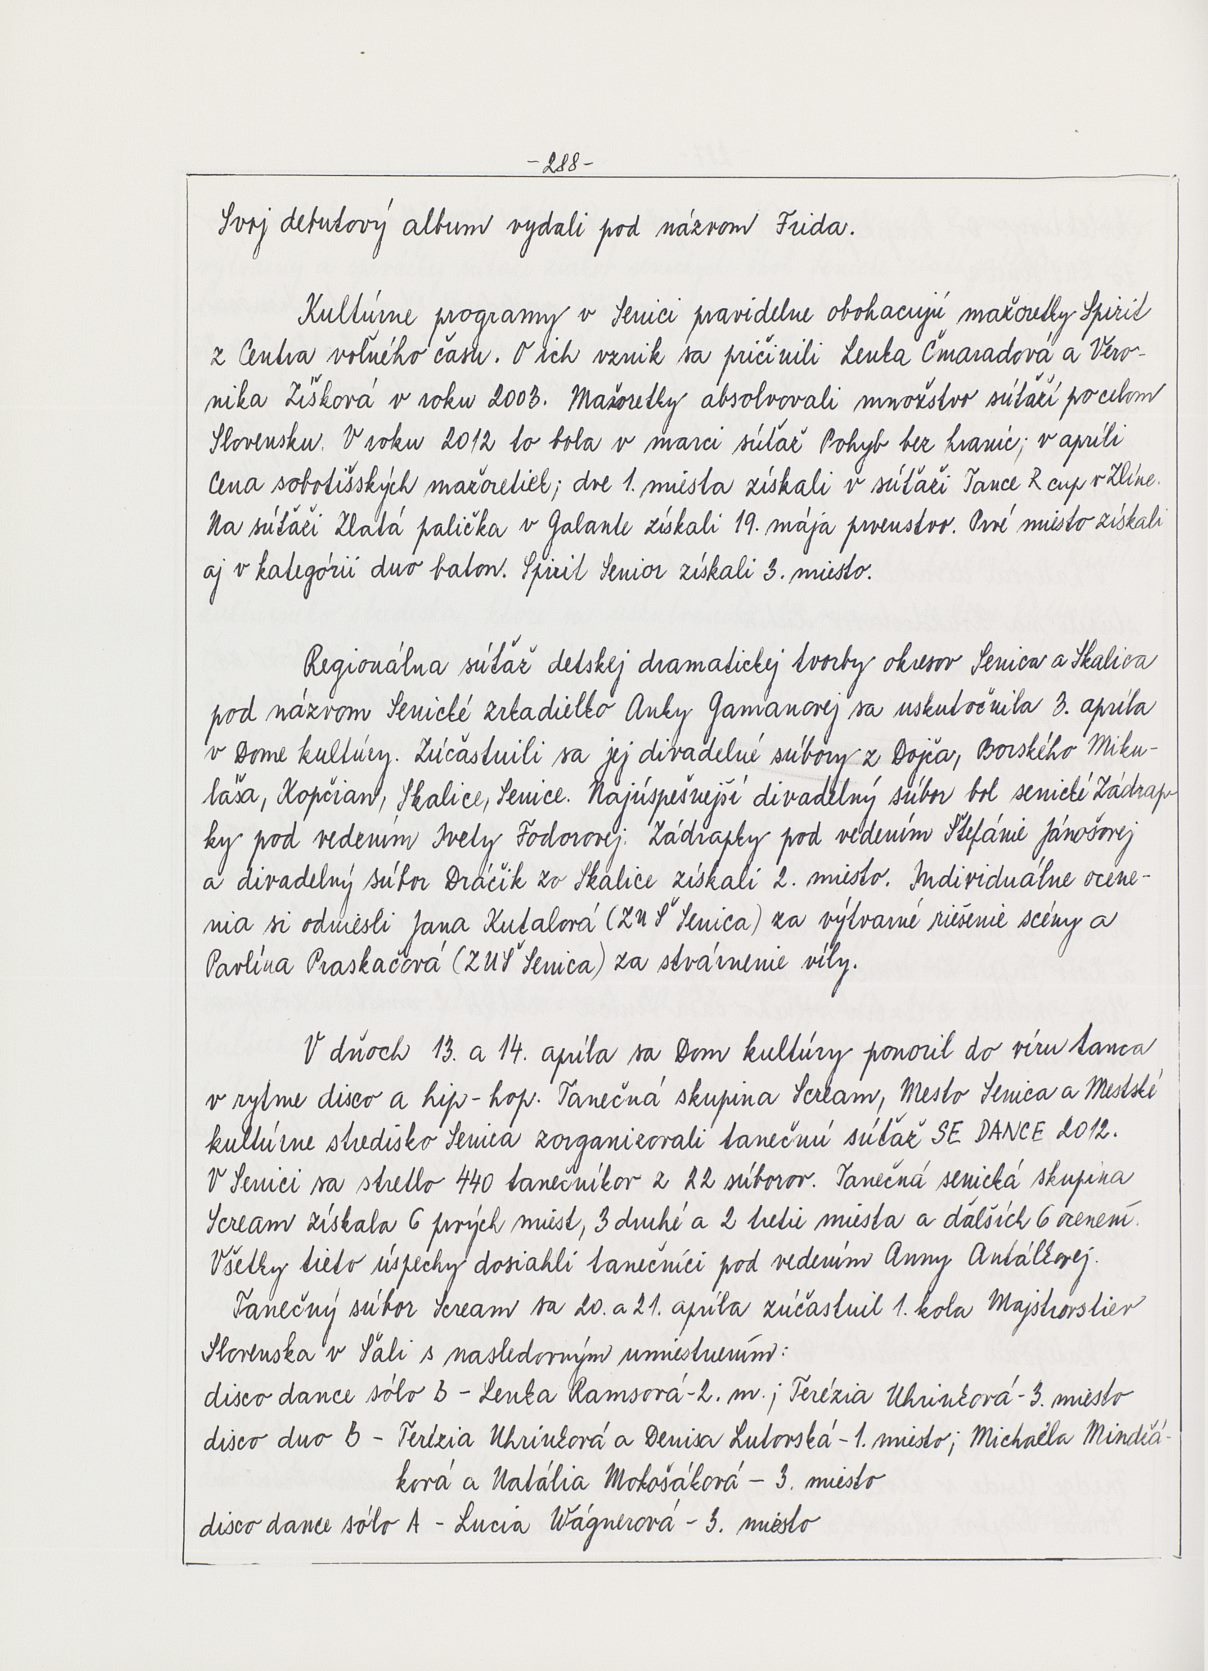 -288-
Svoj debutový album vydali pod názvom Frida.
Kultúrne programy v Senici pravidelne obohacujú mažoretky Spirit
z Centra voľného času. O ich vznik sa pričinili Lenka Čmaradová a Vero-
nika Zíšková v roku 2003. Mažoretky absolvovali množstvo súťaží po celom
Slovensku. V roku 2012 to bola v marci súťaž Pohyb bez hraníc; v apríli
Cena sobotišských mažoretiek; dve 1. miesta získali v súťaži Tance R cup v Zlíne.
Na súťaži Zlatá palička v Galante získali 19. mája prvenstvo. Prvé miesto získali
aj v kategórii duo baton. Spirit Senior získali 3. miesto.
Regionálna súťaž detskej dramatickej tvorby okresov Senica a Skalica
pod názvom Senické zrkadielko Anky Gamanovej sa uskutočnila 3. apríla
v Dome kultúry. Zúčastnili sa jej divadelné súbory z Dojča, Borského Miku-
láša, Kopčian, Skalice, Senice. Najúspešnejší divadelný súbor bol senické Zádrap-
ky pod vedením Ivety Fodorovej. Zádrapky pod vedením Štefánie Jánošovej
a divadelný súbor Dráčik zo Skalice získali 2. miesto. Individuálne ocene-
nia si odniesli Jana Kutalová (ZUŠ Senica) za výtvarné riešenie scény a
Pavlína Praskačová (ZUŠ Senica) za stvárnenie víly.
V dňoch 13. a 14. apríla sa Dom kultúry ponoril do víru tanca
v rytme disco a hip-hop. Tanečná skupina Scream, Mesto Senica a Mestské
kultúrne stredisko Senica zorganizovali tanečnú súťaž SE DANCE 2012.
V Senici sa stretlo 440 tanečníkov z 22 súborov. Tanečná senická skupina
Scream získala 6 prvých miest, 3 druhé a 2 tretie miesta a ďalších 6 ocenení.
Všetky tieto úspechy dosiahli tanečníci pod vedením Anny Antálkovej.
Tanečný súbor Scream sa 20. a 21. apríla zúčastnil 1. kola Majstrovstiev
Slovenska v Šali s nasledovným umiestnením:
disco dance sólo B - Lenka Ramsová - 2. m.; Terézia Uhrinková - 3. miesto
disco duo B - Terézia Uhrinková a Denisa Lutovská - 1. miesto; Michaela Mindžá-
ková a Natália Mokošáková - 3. miesto
disco dance sólo A - Lucia Wágnerová - 3. miesto